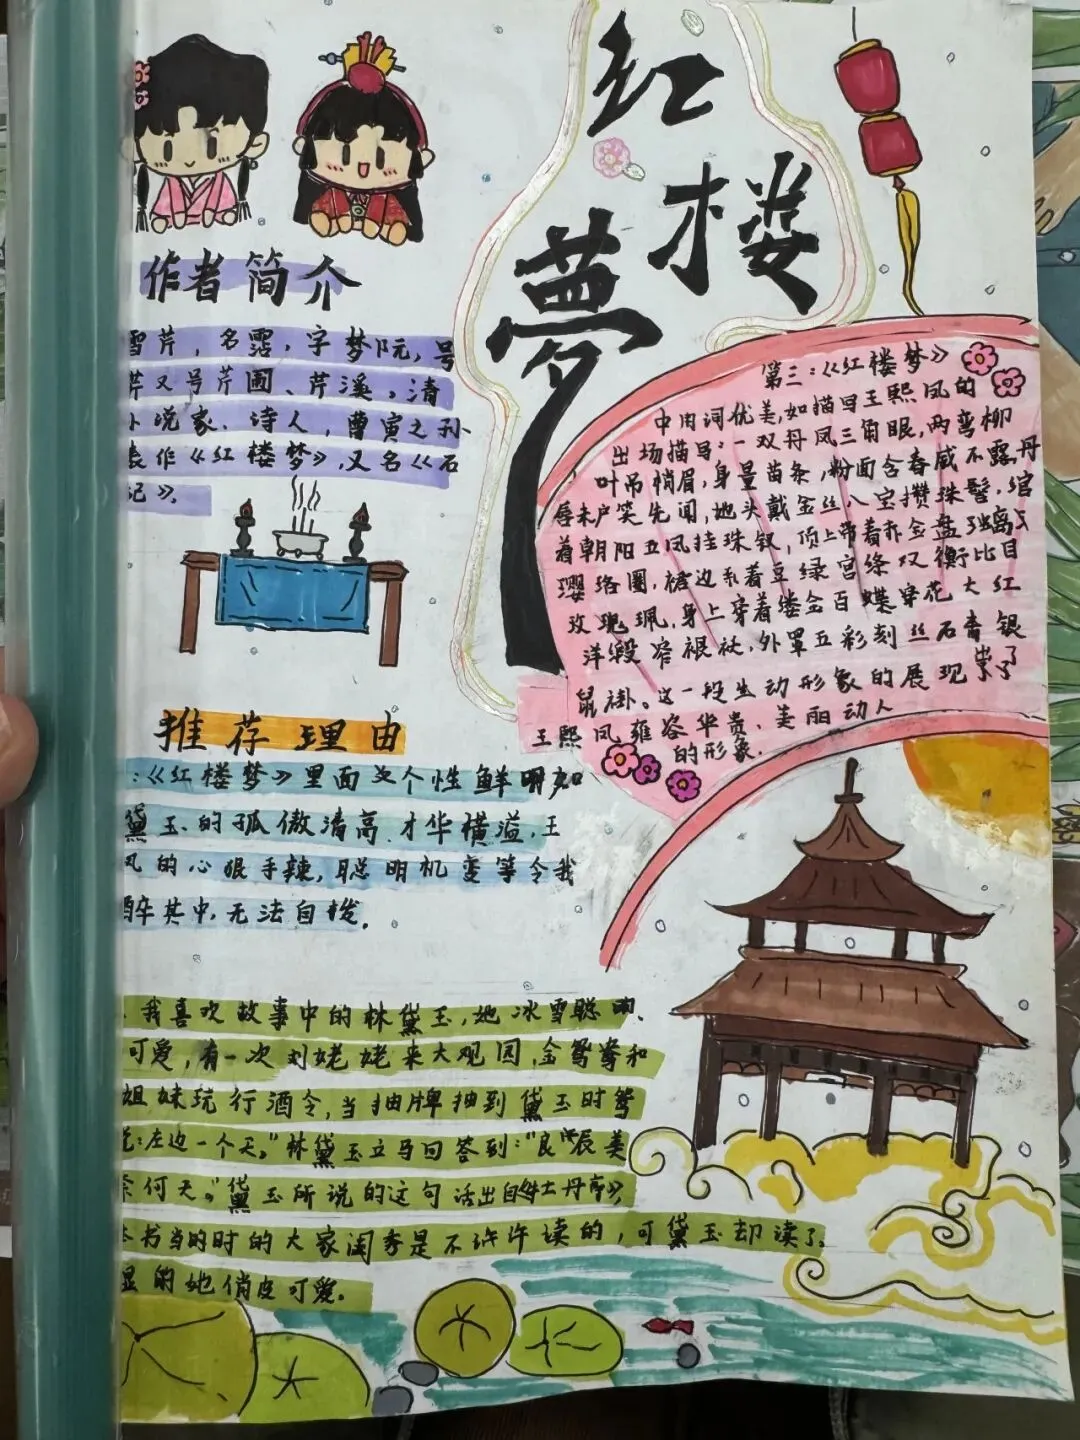 红
楼
夢
作者简介
雪芹，名霑，字梦阮，号
芹又号芹圃、芹溪。清
小说家、诗人，曹寅之孙
表作《红楼梦》，又名《石
记》。
推荐理由
：《红楼梦》里面
个性鲜明如
黛玉的孤傲清高、才华横溢，王
凤的心狠手辣，聪明机变等令我
醉其中，无法自拔。
我喜欢故事中的林黛玉，她冰雪聪明、
可爱，有一次刘姥姥来大观园，金鸳鸯和
姐妹玩行酒令，当抽牌抽到黛玉时鸳
说：左边一个天。”林黛玉立马回答到：“良辰美
奈何天。”黛玉所说的这句话出自牡丹亭》，
本书当时的大家闺秀是不许读的，可黛玉却读了。
显的她俏皮可爱。
第三：《红楼梦》
中用词优美，如描写王熙凤的
出场描写：一双丹凤三角眼，两弯柳
叶吊梢眉，身量苗条，粉面含春威不露，丹
唇未启笑先闻，她头戴金丝八宝攒珠髻，绾
着朝阳五凤挂珠钗，顶上带着赤金盘螭
璎珞圈，裙边系着豆绿宫绦双衡比目
玫瑰珮，身上穿着缕金百蝶穿花大红
洋缎窄裉袄，外罩五彩刻丝石青银
鼠褂。这一段生动形象的展现出了
王熙凤雍容华贵、美丽动人
的形象。